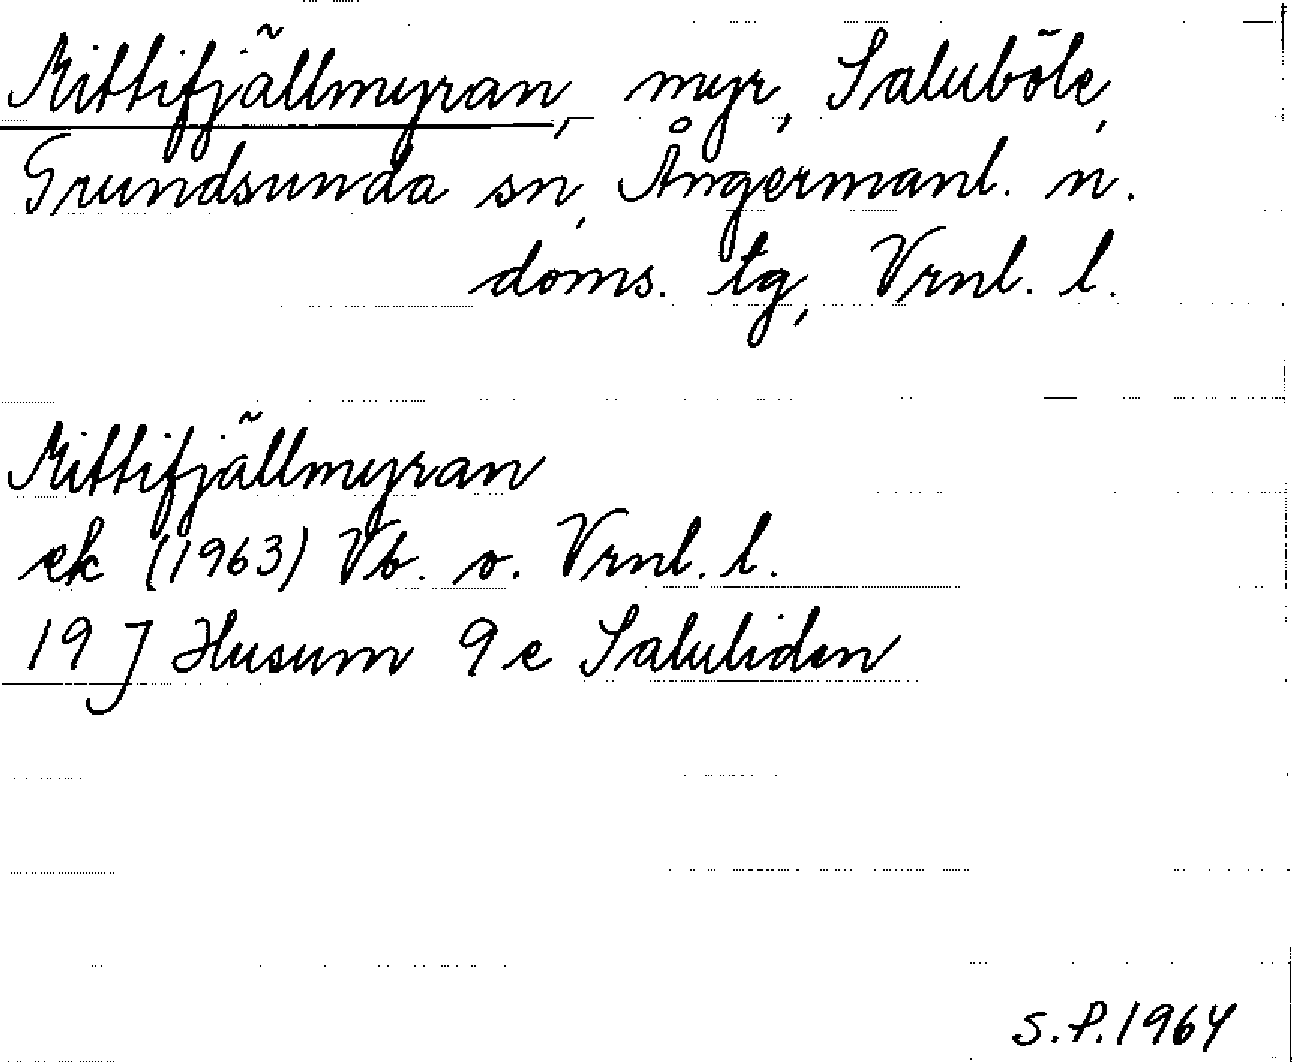 Mittifjällmyran, myr, Saluböle,
Grundsunda sn, Ångermanl. n.
doms. tg, Vrnl. l.
Mittifjällmyran
ek (1963) Vb. o. Vrnl. l.
19 J Husum 9 e Saluliden
S.P. 1964